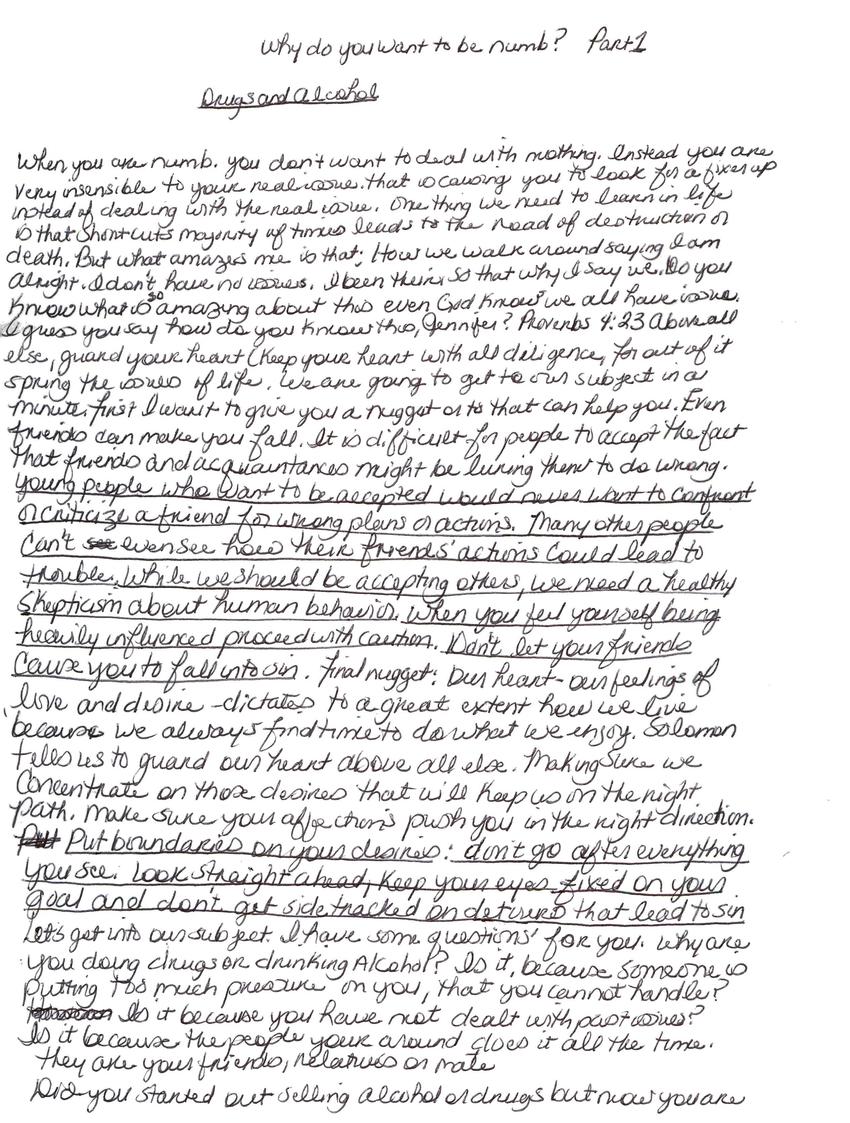 Why do you want to be numb? Part 1
Drugs and Alcohol
When you are numb. you don't want to deal with nothing. Instead you are
very insensible to your real issue. that is causing you to look for a fixer up
instead of dealing with the real issue. One thing we need to learn in life
is that shortcuts majority of times leads to the road of destruction or
death. But what amazes me is that; How we walk around saying I am
alright. I don't have no issues. I been there so that why I say we. Do you
know what is so amazing about this even God knows we all have issue.
I guess you say how do you know this, Jennifer? Proverbs 4:23 Above all
else, guard your heart (Keep your heart with all diligence, for out of it
spring the issues of life. We are going to get to our subject in a
minute. first I want to give you a nugget or to that can help you. Even
friends can make you fall. It is difficult for people to accept the fact
that friends and acquaintances might be luring them to do wrong.
young people who want to be accepted would never want to confront
or criticize a friend for wrong plans or actions. Many other people
can't even see how their friends' actions could lead to
trouble. While we should be accepting others, we need a healthy
skepticism about human behavior. When you feel yourself being
heavily influenced proceed with caution. Don't let your friends
cause you to fall into sin. Final nugget: Our heart - our feelings of
love and desire - dictates to a great extent how we live
because we always find time to do what we enjoy. Solomon
tells us to guard our heart above all else. Making sure we
concentrate on those desires that will keep us on the right
path. Make sure your affections push you in the right direction.
Put boundaries on your desires: don't go after everything
you see. Look straight ahead, keep your eyes fixed on your
goal and don't get sidetracked on detours that lead to sin
Let's get into our subject. I have some questions for you. Why are
you doing drugs or drinking Alcohol? Is it, because someone is
putting too much pressure on you, that you cannot handle?
Is it because you have not dealt with past issues?
Is it because the people your around does it all the time.
they are your friends, relatives or mate
Did you started out selling alcohol or drugs but now you are